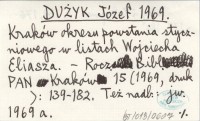 DUŻYK Józef 1969.
Kraków okresu powstania stycz-
niowego w listach Wojciecha
Eliasza. – Rocz. Bibl.
PAN Kraków 15 (1969, druk
): 139-182. Też nadb.: jw.
1969 a.